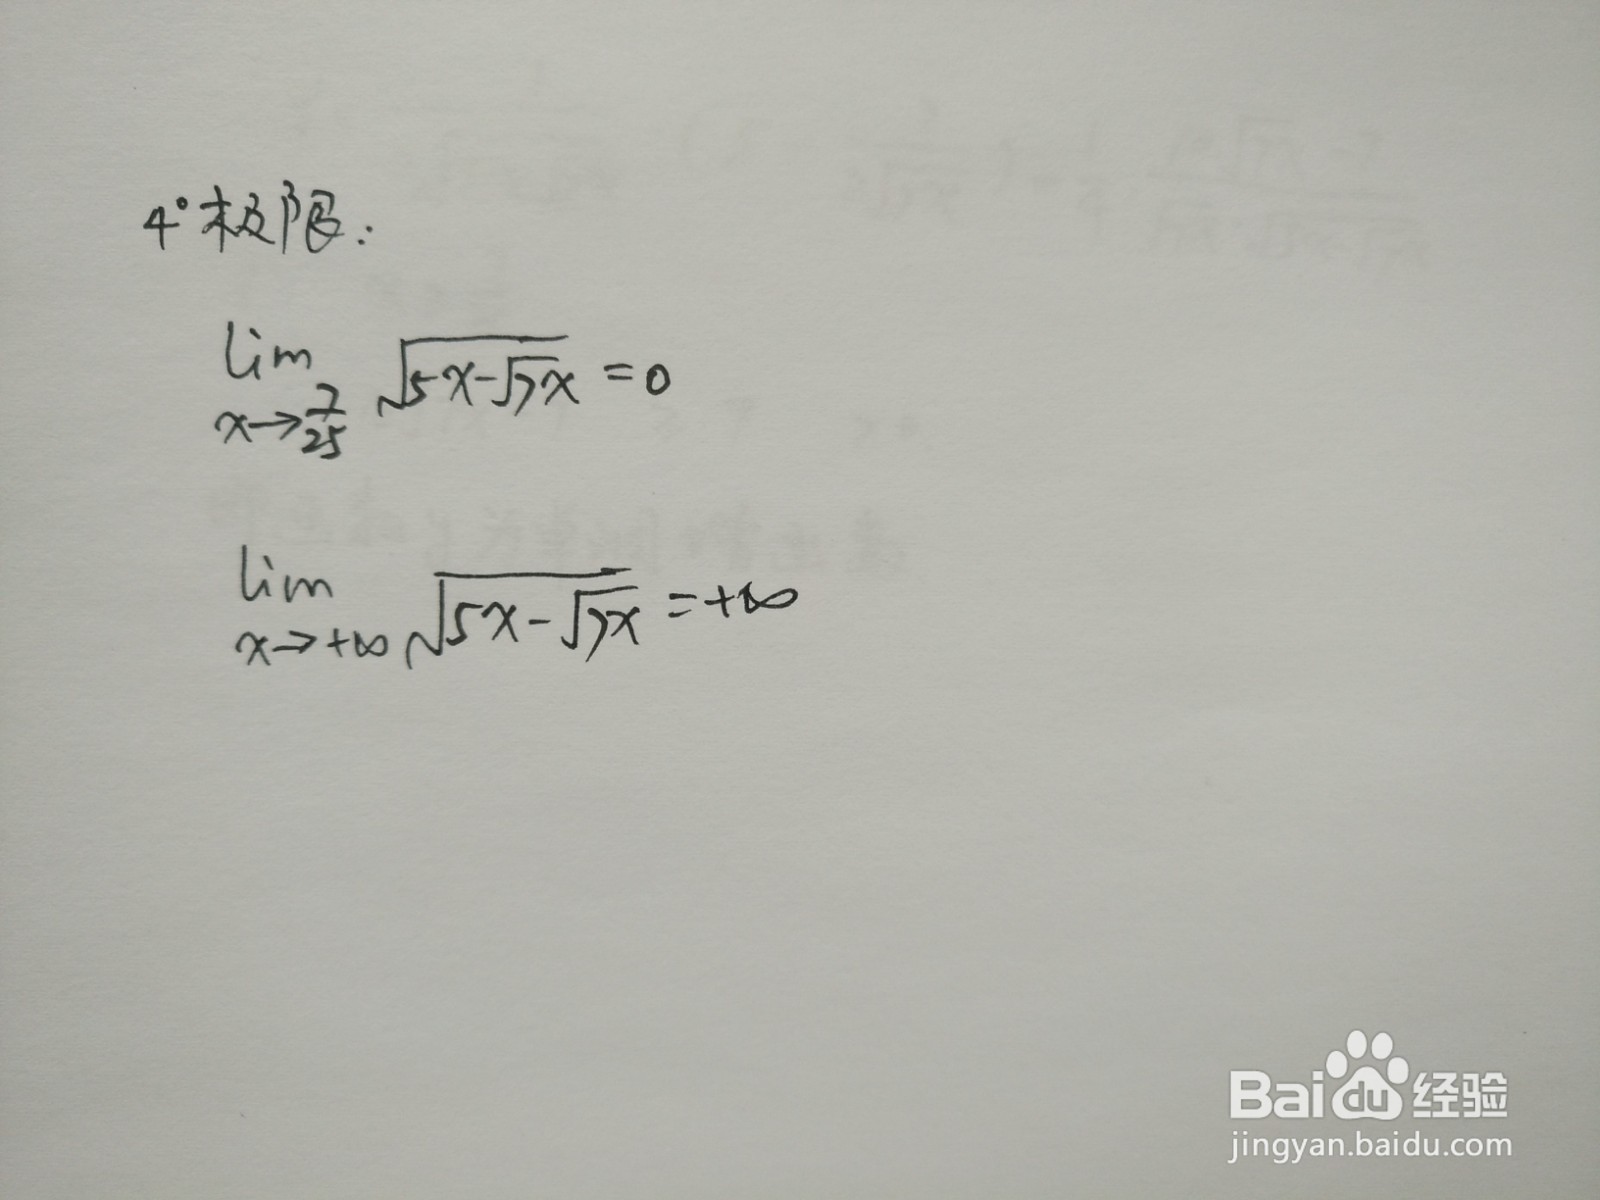 4°极限:
lim x→7/25 √(5x-√7x) =0
lim x→+∞ √(5x-√7x) =+∞
Baidu经验
jingyan.baidu.com